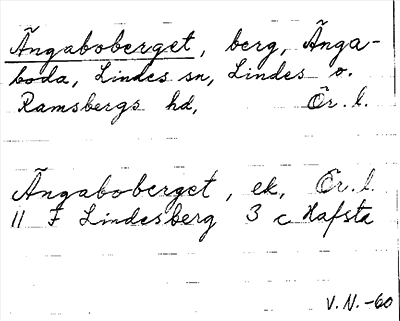 Ängaboberget, berg, Änga-
boda, Lindes sn, Lindes o.
Ramsbergs hd, Ör. l.
Ängaboberget, ek, Ör. l.
11 F Lindesberg 3 c Hafsta
V.N.-60